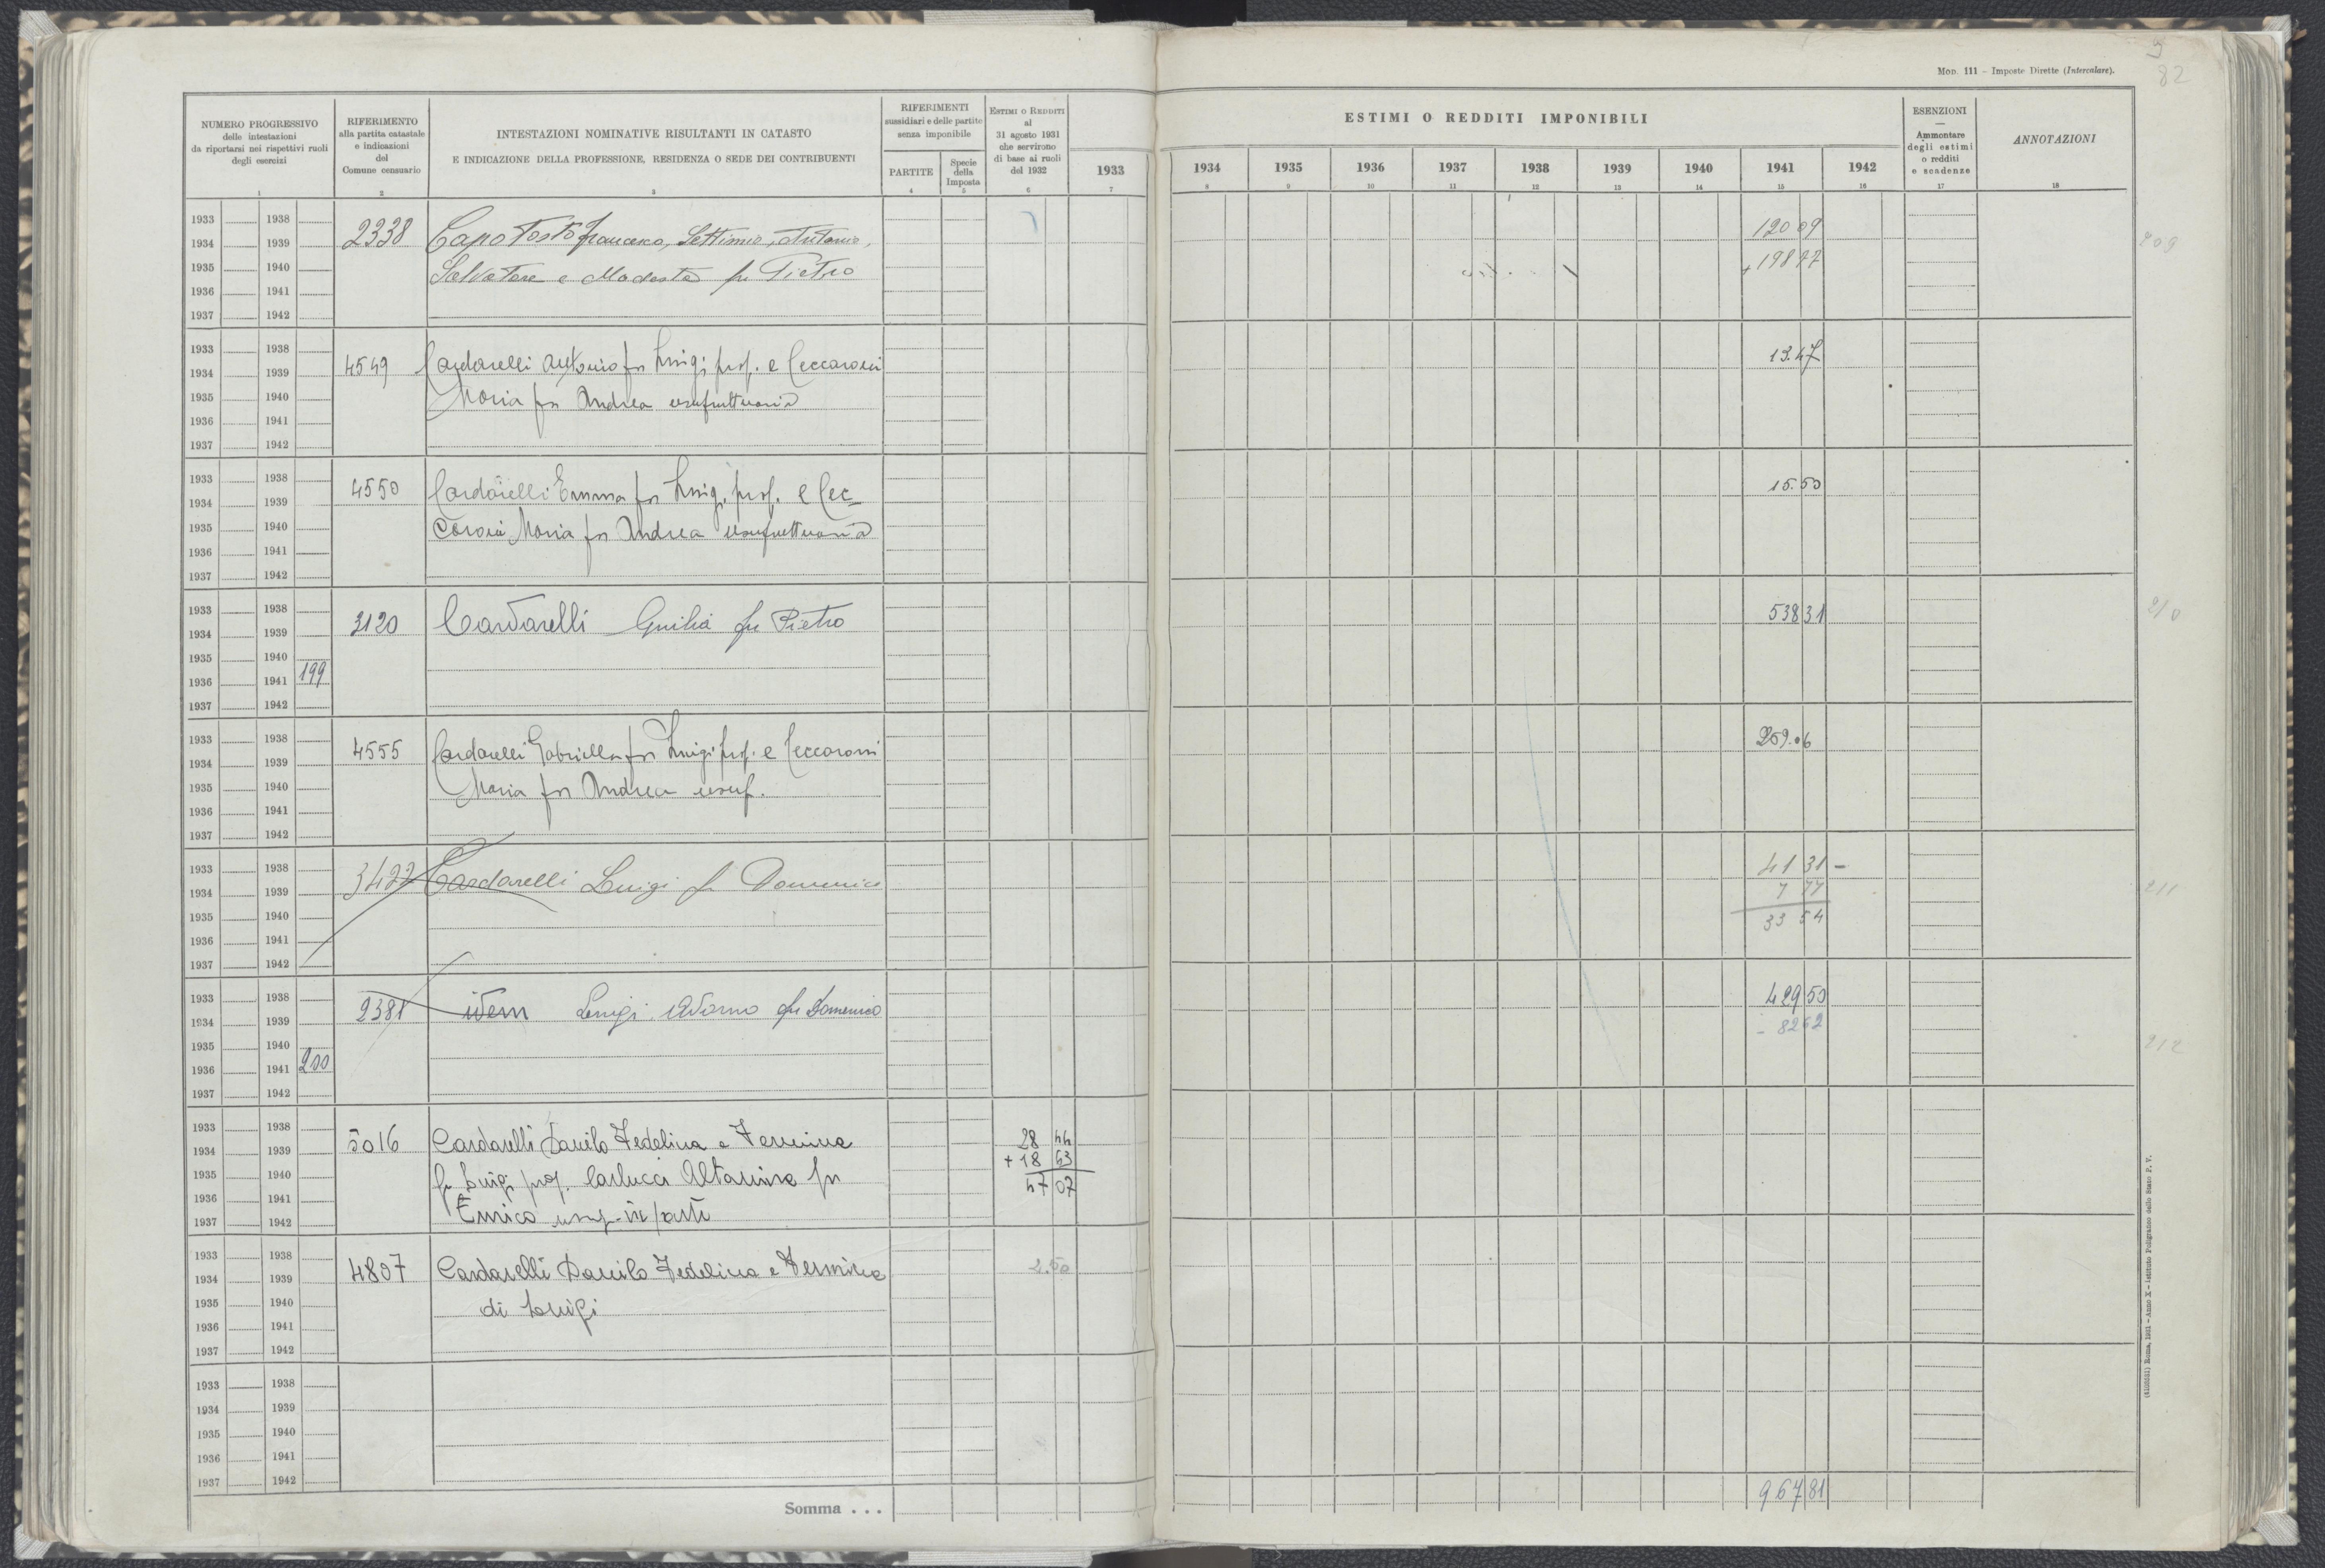 82
MOD. 111 – Imposte Dirette (Intercalare).
NUMERO PROGRESSIVO
delle intestazioni
da riportarsi nei rispettivi ruoli
degli esercizi
1
RIFERIMENTO
alla partita catastale
e indicazioni
del
Comune censuario
2
INTESTAZIONI NOMINATIVE RISULTANTI IN CATASTO
E INDICAZIONE DELLA PROFESSIONE, RESIDENZA O SEDE DEI CONTRIBUENTI
3
RIFERIMENTI
sussidiari e delle partite
senza imponibile
PARTITE
4
Specie
della
Imposta
5
ESTIMI O REDDITI
al
31 agosto 1931
che servirono
di base ai ruoli
del 1932
6
1933
7
ESTIMI O REDDITI IMPONIBILI
1934 1935 1936 1937 1938 1939 1940 1941 1942
8 9 10 11 12 13 14 15 16
ESENZIONI
—
Ammontare
degli estimi
o redditi
e scadenze
17
ANNOTAZIONI
18
1933 1938
1934 1939
1935 1940
1936 1941
1937 1942
2338 Capotosto Francesco, Settimio, Antonio,
Salvatore e Modesta fu Pietro
120 09
+ 198 77
209
1933 1938
1934 1939
1935 1940
1936 1941
1937 1942
4549 Cardarelli Antonio fu Luigi prop. e Ceccaroni
Maria fu Andrea usufruttuaria
13.47
1933 1938
1934 1939
1935 1940
1936 1941
1937 1942
4550 Cardarelli Emma fu Luigi prop. e Cec-
caroni Maria fu Andrea usufruttuaria
15.50
1933 1938
1934 1939
1935 1940
1936 1941 199
1937 1942
3120 Cardarelli Giulia fu Pietro
538 31
210
1933 1938
1934 1939
1935 1940
1936 1941
1937 1942
4555 Cardarelli Gabriella fu Luigi prop. e Ceccaroni
Maria fu Andrea usuf.
259.06
1933 1938
1934 1939
1935 1940
1936 1941
1937 1942
3427 Cardarelli Luigi fu Domenico
41 31 –
7 77
33 54
211
1933 1938
1934 1939
1935 1940
1936 1941 200
1937 1942
2381 idem Luigi Adorno fu Domenico
429 50
- 82 62
212
1933 1938
1934 1939
1935 1940
1936 1941
1937 1942
5016 Cardarelli Danilo Fedelina e Fermina
fu Luigi prop. Carlucci Altavina fu
Enrico usuf. in parte
28 44
+ 18 63
47 07
1933 1938
1934 1939
1935 1940
1936 1941
1937 1942
4807 Cardarelli Danilo Fedelina e Fermina
di Luigi
2.50
1933 1938
1934 1939
1935 1940
1936 1941
1937 1942
Somma . . .
967 81
(4103551) Roma, 1931 – Anno X – Istituto Poligrafico dello Stato P. V.